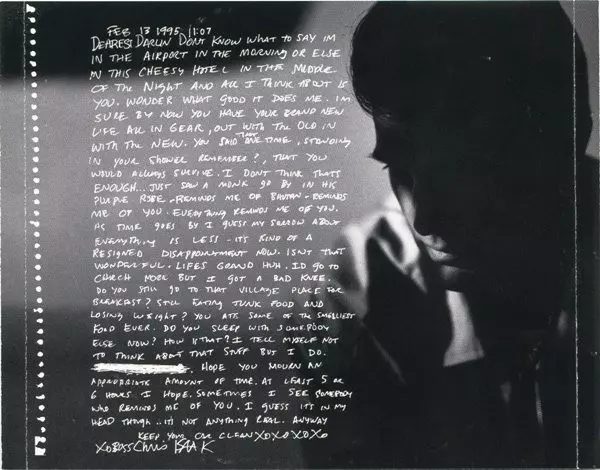 FEB 13 1995 11:07
DEAREST DARLIN DONT KNOW WHAT TO SAY IM
IN THE AIRPORT IN THE MORNING OR ELSE
IN THIS CHEESY HOTEL IN THE MIDDLE
OF THE NIGHT AND ALL I THINK ABOUT IS
YOU. WONDER WHAT GOOD IT DOES ME. IM
SURE BY NOW YOU HAVE YOUR BRAND NEW
LIFE ALL IN GEAR, OUT WITH THE OLD IN
WITH THE NEW. YOU SAID THAT ONE TIME, STANDING
IN YOUR SHOWER REMEMBER?, THAT YOU
WOULD ALWAYS SURVIVE. I DONT THINK THATS
ENOUGH... JUST SAW A MONK GO BY IN HIS
PURPLE ROBE - REMINDS ME OF BHUTAN - REMINDS
ME OF YOU. EVERYTHING REMINDS ME OF YOU.
AS TIME GOES BY I GUESS MY SORROW ABOUT
EVERYTHING IS LESS - ITS KIND OF A
RESIGNED DISAPPOINTMENT NOW. ISNT THAT
WONDERFUL. LIFES GRAND HUH. ID GO TO
CHURCH MORE BUT I GOT A BAD KNEE.
DO YOU STILL GO TO THAT VILLAGE PLACE FOR
BREAKFAST? STILL EATING JUNK FOOD AND
LOSING WEIGHT? YOU ATE SOME OF THE SMELLIEST
FOOD EVER. DO YOU SLEEP WITH SOMEBODY
ELSE NOW? HOW IS THAT? I TELL MYSELF NOT
TO THINK ABOUT THAT STUFF BUT I DO.
HOPE YOU MOURN AN
APPROPRIATE AMOUNT OF TIME. AT LEAST 5 OR
6 HOURS I HOPE. SOMETIMES I SEE SOMEBODY
WHO REMINDS ME OF YOU. I GUESS ITS IN MY
HEAD THOUGH.. ITS NOT ANYTHING REAL. ANYWAY
KEEP YOUR CAR CLEAN XOXOXOXO
XOBOSS CHRIS ISAAK